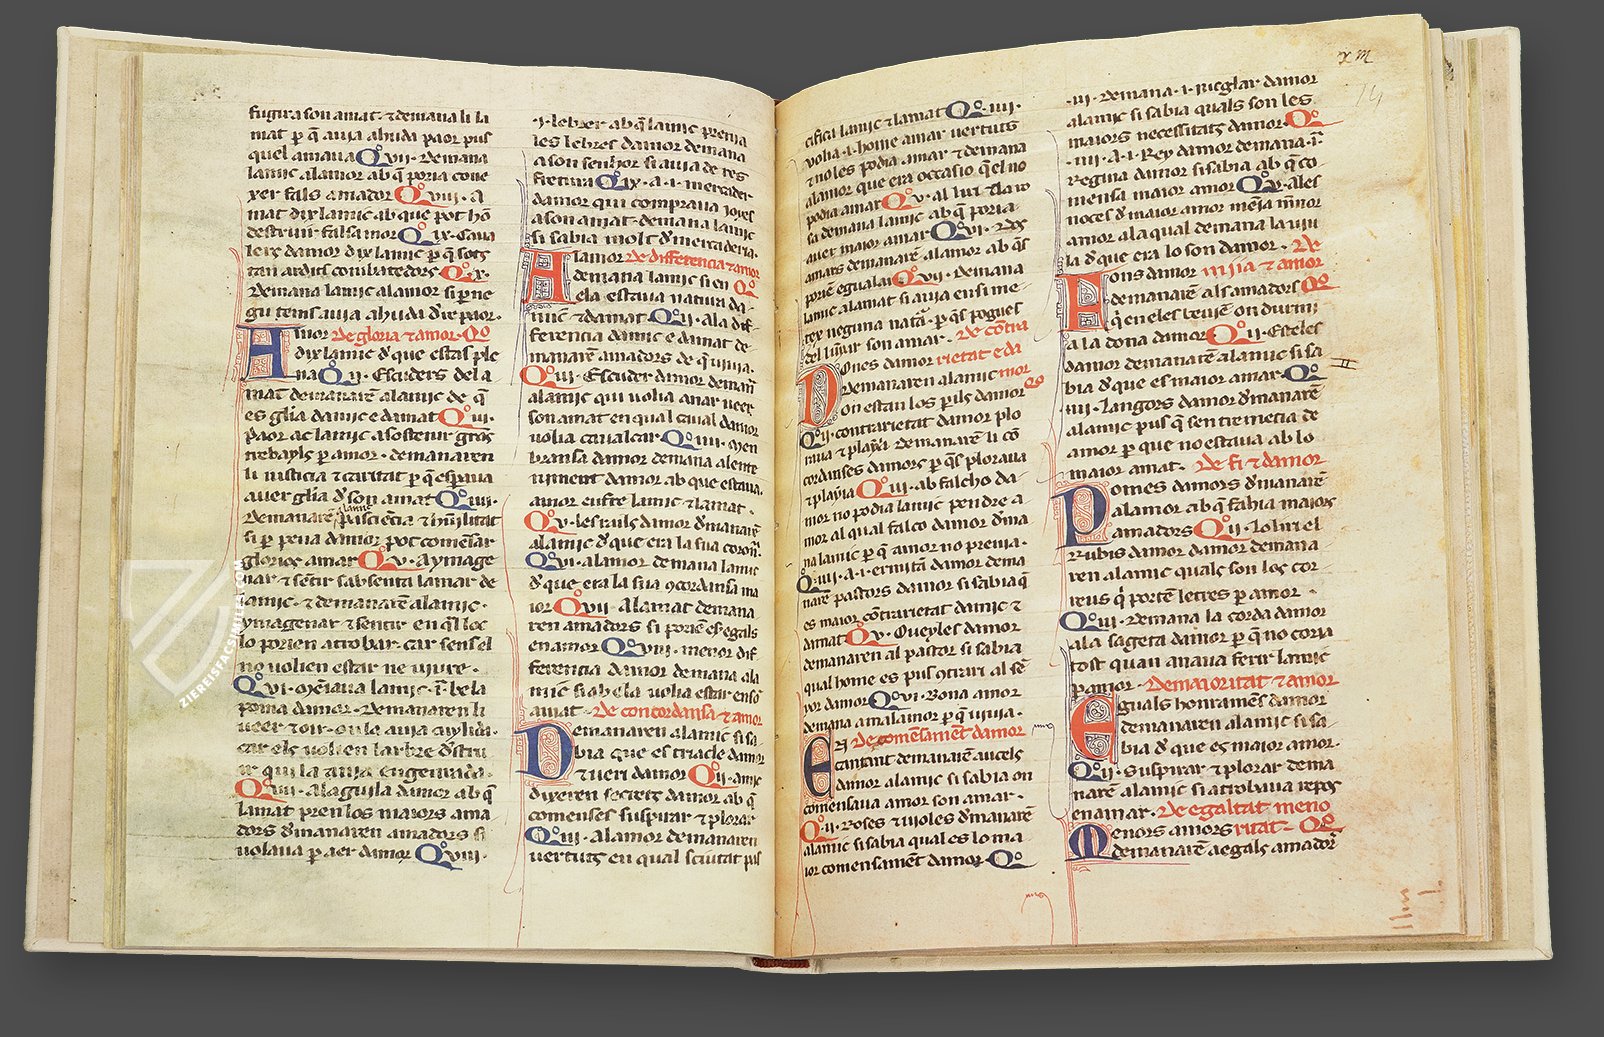 fugira son amat · ⁊ demana li la
mat p̱ q̄ auia ahuda paor pus
quel amaua Qo vij · Demana
lamic alamor ab q̄ poria coue
xer fals amador Qo viij · A
mat dix lamic ab que pot hō
destruir falsa mor Qo ix · Caua
lers damor dix lamic p̱ q̄ sots
tan ardits combatedors · Qo x ·
Demana lamic alamor si p̱ ne
gu temps auia ahuda dire paor ·
Amor De gloria ⁊ amor · Qo
dix lamic d' que estas ple
na Qo ij · Escuders de la
mat demanarē alamic de q̄
es glia damic e damat Qo iij ·
Paor ac lamic a sostenir grās
trebayls p̱ amor · demanaren
li iusticia ⁊ caritat p̱ q̄ esperaua
auer glia d' son amat Qo iiij ·
Demanarē lamic paciēcia ⁊ humilitat
si p̱ pena damor pot comēsar
glorios amar Qo v · Aymage
nar ⁊ sētir sabsenta lamar de
amic · ⁊ demanarē alamic ·
ymagenar ⁊ sentir en q̄l loc
lo porien atrobar · car sens el
no uolien estar ne uiure ·
Qo vj · Mējaua lamic · j · bela
poma damor · Demanaren li
ueer ⁊ oir · on la auia cuylida ·
car els uolien larbre d'stru
ir qui la auia engenrada ·
Qo vij · Alaguila damor ab q̄
lamat pren los maiors ama
dors d'manaren amadors si
uolaua p̱ aer damor Qo viij ·
· j · lebrer ab q̄ lamic prenia
les lebres damor demana
a son senhor si auia de res
fretura Qo ix · A · j · mercader
damor qui compraua joyes
a son amat · demana lamic
si sabia molt d' mercaderia ·
Alamor De differencia ⁊ amor
demana lamic si en Qo
ela estaua natura da
mic · ⁊ damat · Qo ij · Ala dif
ferencia damic e damat de
manaren amadors de q̄ uiuia ·
Qo iij · Escuder damor demanā
alamic qui uolia anar ueer
son amat en qual caual damor
uolia caualcar Qo iiij · Men
bransa damor demana alente
niment damor ab que estaua
amor enfre lamic ⁊ lamat ·
Qo v · Les ruls damor d'manarē
alamic d' que era la sua corona ·
Qo vi · Alamor demana lamic
d' que era la sua ꝯcordansa ma
ior Qo vij · Alamat demana
ren amadors si poriē es egals
en amor Qo viij · Menor dif
ferencia damor demana ala
mic si ab ela uolia estar ensē
amat · De concordansa ⁊ amor
Demanaren alamic si sa
bia que es triacle damor
⁊ ueri damor Qo ij · Amic
dixeren secrets damor ab q̄
comenses suspirar ⁊ plorar
Qo iij · Alamor demanaren
uertuts en qual sciutat pus
cifica lamic ⁊ lamat Qo iiij ·
Volia · j · home amar uertuts
⁊ no les podia amar ⁊ demana
alamor que era occasio q̄ el no
podia amar Qo v · Al luri
sa demana lamic ab q̄ poria
auer maior amar Qo vi · Dos
amats demanarē alamor ab q̄s
poriē egualar Qo vij · Demana
lamic alamat si auia en si me
tex neguna nat'a · p̱ q̄s pogues
del luyar son amar · De cōtra
Dones damor rietat e da
demanaren alamic mor
on estan los p̱ils damor Qo
Qo ij · Contrarietat damor plo
raua ⁊ playia · demanarē li cō
cordanses damors p̱ q̄s ploraua
⁊ playia Qo iij · Ab falcho da
mor no podia lamic pendre a
mor al qual falco damor d'ma
na lamic p̱ q̄ amor no prenia ·
Qo iiij · A · j · ermitā damor dema
narē pastors damor si sabia q̄
es maior cōtrarietat damic ⁊
damat Qo v · Oueyles damor
demanaren al pastor si sabia
qual home es pus ꝯtrari al sē
yor damor Qo vi · Bona amor
demana amalamor p̱ q̄ uiuia ·
En De comēsament damor
cantant demanarē aucels
damor alamic si sabia on
comensaua amor son amar ·
Qo ij · Roses ⁊ uioles d'manarē
alamic si sabia qual es lo ma
ior comensamēt damor · Qo
xiiij
14
· iij · Demana · j · jucglar damor
alamic si sabia quals son les
maiors necessitats damor · Qo
· iiij · A · j · Rey damor demana · j ·
Regina damor si sabia ab q̄ co
mensa maior amor Qo v · A les
noces d' maior amor mēia menor
amor ala qual demana lamic
la d' que era lo son damor · De
Fons damor mijia ⁊ amor
demanarē als amadors Qo
q̇ en eles beuiē on durmi
a la dona damor Qo ij · Esteles
damor demanarē alamic si sa
bia d' que es maior amar · Qo
· iij · Langors damor d'manarē
alamic pus q̄ sentremetia de
amor p̱ que no estaua ab lo
maior amat · De fi ⁊ damor
Pomes damors d'manarē
alamor ab q̄ fahia maiors
amadors Qo ij · Lobriel
Rubis damor damor demana
ren alamic quals son los cor
reus q̇ portē letres p̱ amor ·
Qo iij · Demana la corda damor
ala sageta damor p̱ q̄ no coria
tost quan anaua ferir lamic
p̱ amor · De maioritat ⁊ amor
Eguals honramēs damor
demanaren alamic si sa
bia d' que es maior amor ·
Qo ij · Suspirar ⁊ plorar dema
narē alamic si atrobaua repos
en amar · De egaltat meno
Menors amors ritat · Qo
demanarē aegals amador
ZIEREISFACSIMILES.COM